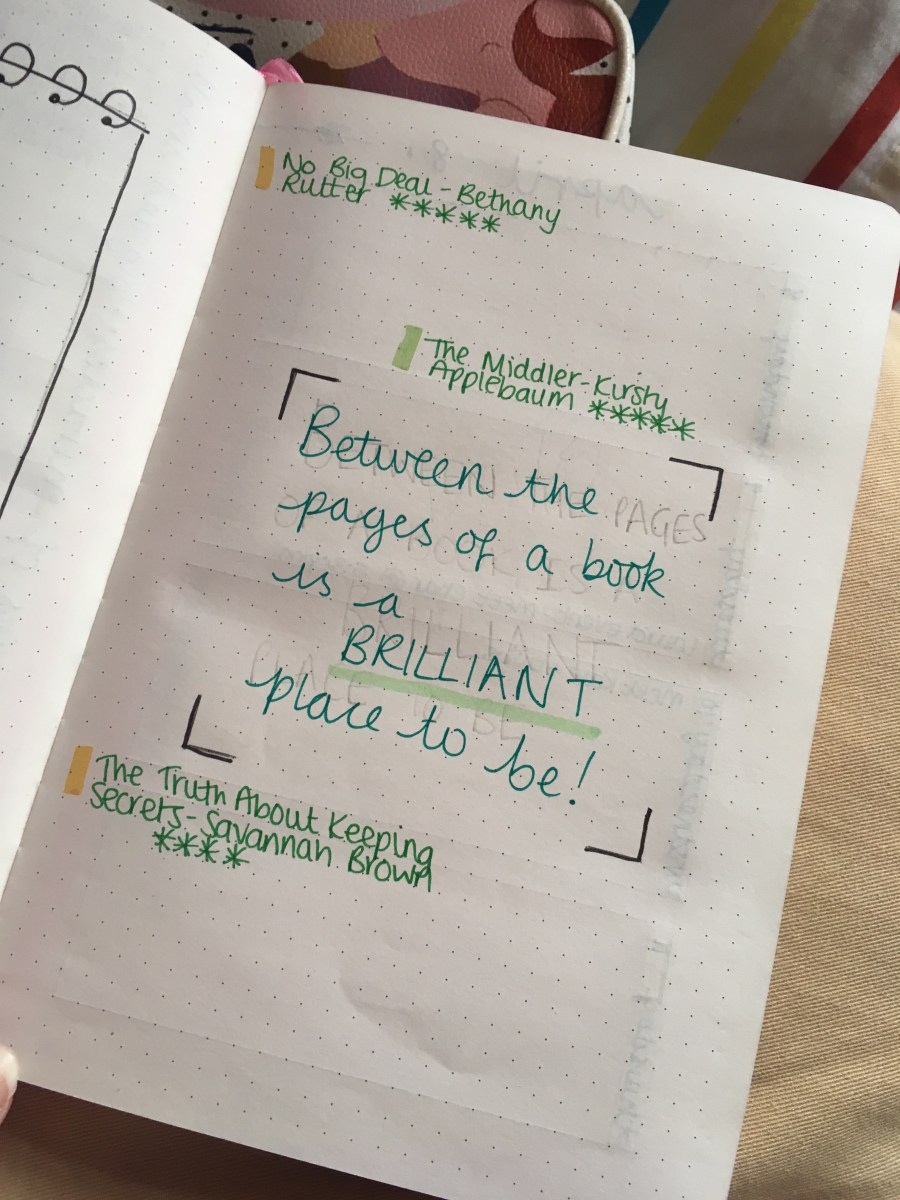 No Big Deal - Bethany
Rutter *****
The Middler - Kirsty
Applebaum *****
Between the
pages of a book
is a
BRILLIANT
place to be!
The Truth About Keeping
Secrets - Savannah Brown
****